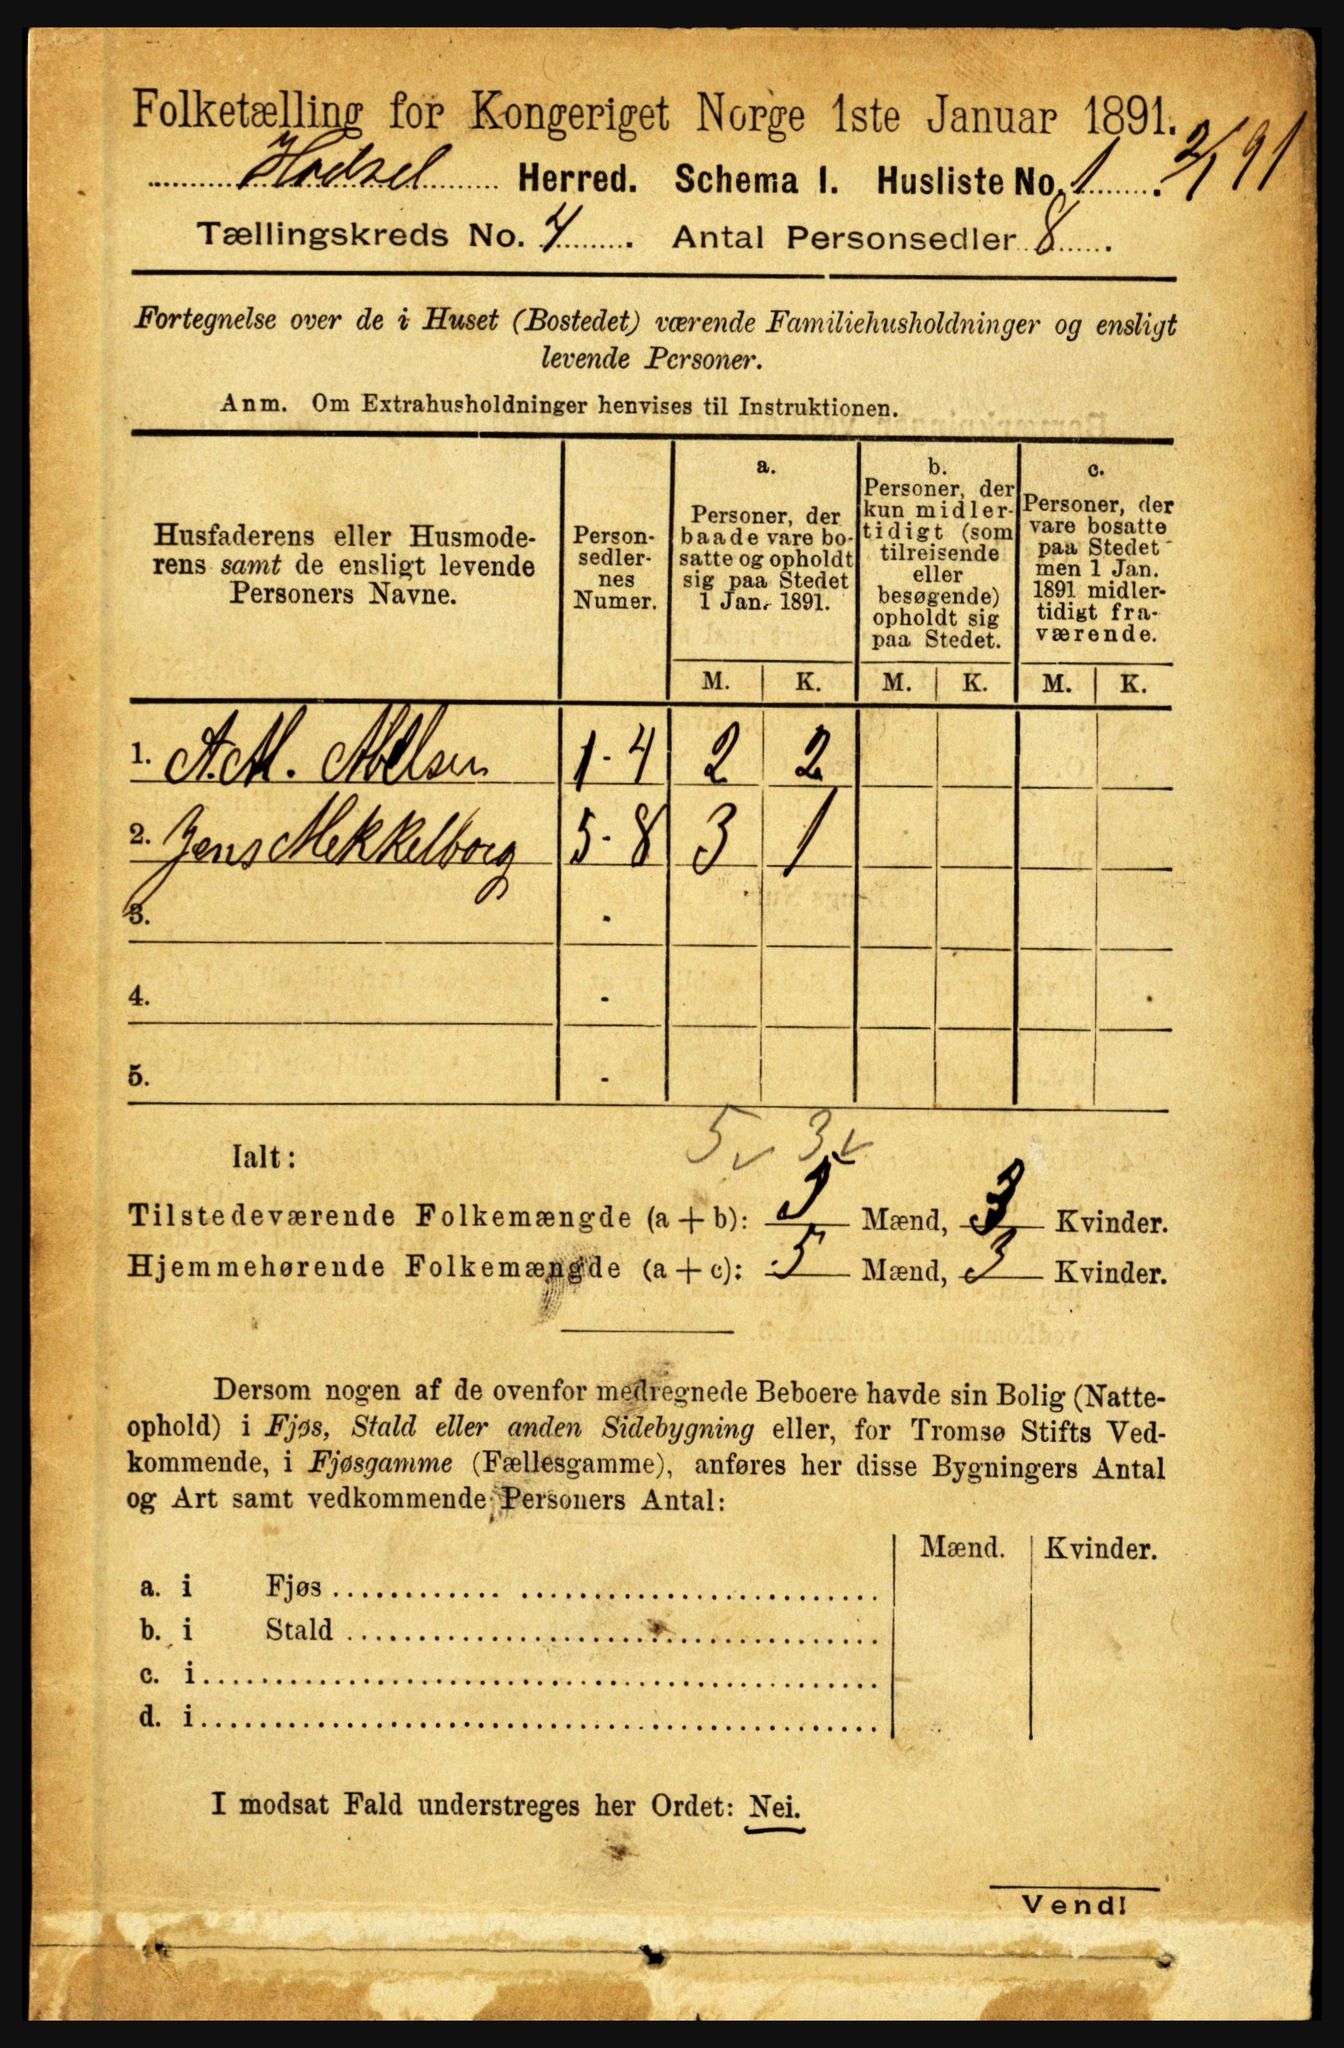 Folketælling for Kongeriget Norge 1ste Januar 1891.
Hadsel Herred. Schema 1. Husliste No. 1. 2/1 91
Tællingskreds No. 4. Antal Personsedler 8.
Fortegnelse over de i Huset (Bostedet) værende Familiehusholdninger og ensligt
levende Personer.
Anm. Om Extrahusholdninger henvises til Instruktionen.
Husfaderens eller Husmode-
rens samt de ensligt levende
Personers Navne.
Person-
sedler-
nes
Numer.
a.
Personer, der
baade vare bo-
satte og opholdt
sig paa Stedet
1 Jan. 1891.
b.
Personer, der
kun midler-
tidigt (som
tilreisende
eller
besøgende)
opholdt sig
paa Stedet.
c.
Personer, der
vare bosatte
paa Stedet
men 1 Jan.
1891 midler-
tidigt fra-
værende.
M. K. M. K. M. K.
1. A. M. Abelsen 1-4 2 2
2. Jens Mekkelborg 5-8 3 1
3. -
4. -
5. -
5 3
Ialt:
Tilstedeværende Folkemængde (a + b): 5 Mænd, 3 Kvinder.
Hjemmehørende Folkemængde (a + c): 5 Mænd, 3 Kvinder.
Dersom nogen af de ovenfor medregnede Beboere havde sin Bolig (Natte-
ophold) i Fjøs, Stald eller anden Sidebygning eller, for Tromsø Stifts Ved-
kommende, i Fjøsgamme (Fællesgamme), anføres her disse Bygningers Antal
og Art samt vedkommende Personers Antal:
Mænd. Kvinder.
a. i Fjøs
b. i Stald
c. i
d. i
I modsat Fald understreges her Ordet: Nei.
Vend!